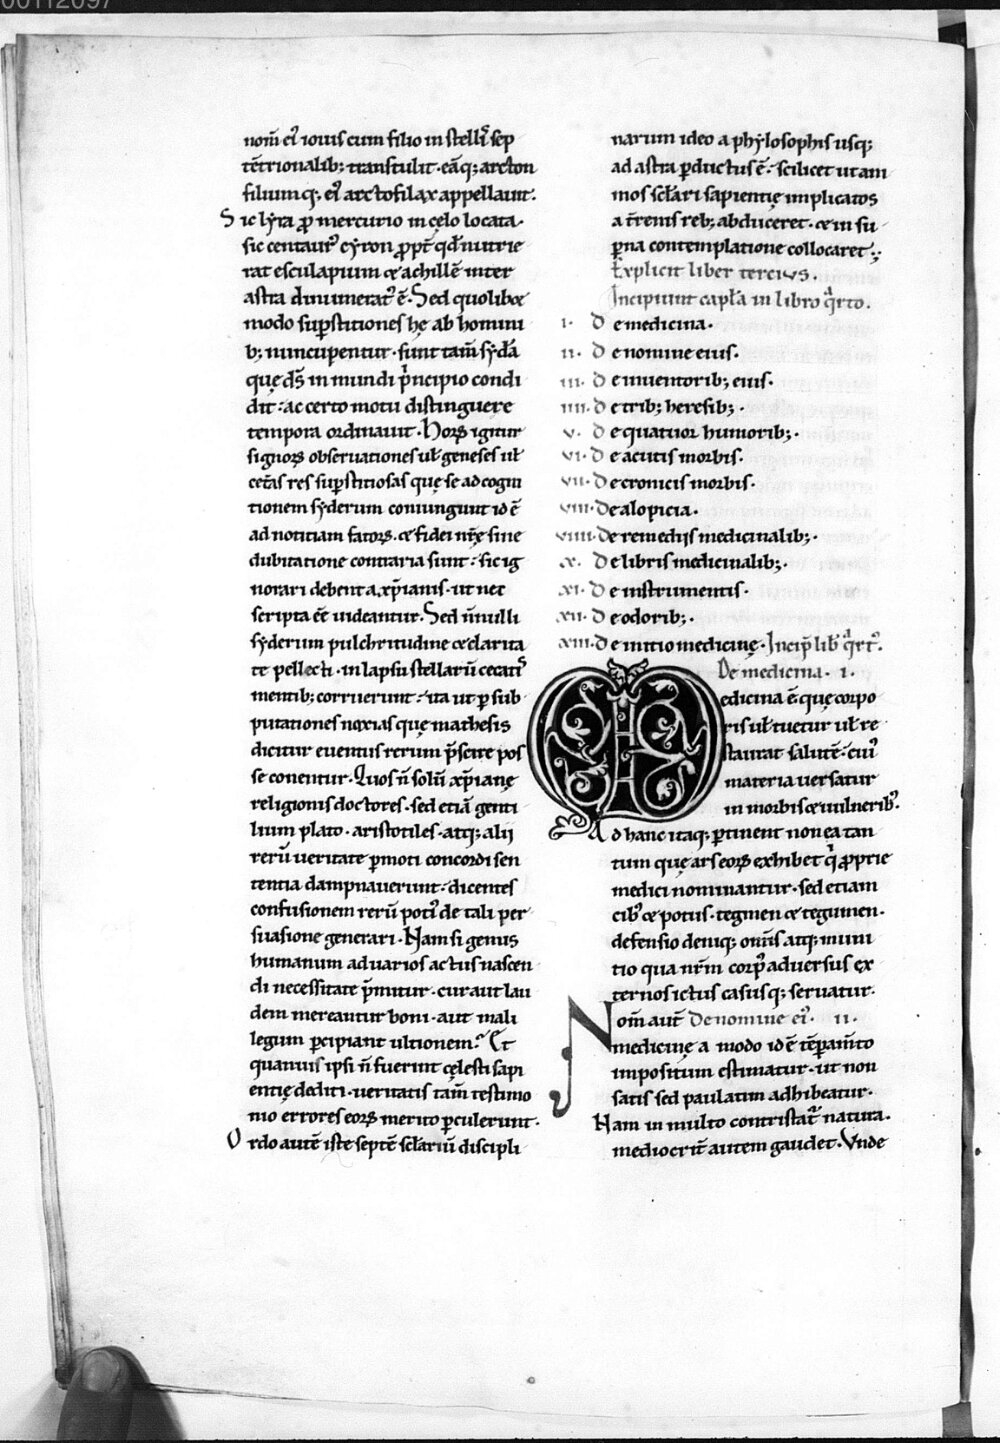 00112097
nom̄ ei᷒ iouis cum filio in stellis᷒ sep
tētrionalib; transtulit · eāq; arcton
filium q; ei᷒ arctofilax appellauit.
Sic lyra ꝓ mercurio in cęlo locata.
sic centaur᷒ cyron ꝓpt̄ qđ nutrie
rat esculapium & achillē inter
astra dinumerat᷒ ē. Sed quolibet
modo suꝑstitiones hę ab homini
b; nuncupentur · sunt tam̄ sydā
quę ds̄ in mundi pͥncipio condi
dit: ac certo motu distinguere
tempora ordinauit. Horꝝ igitur
signorꝝ obseruationes uł geneses uł
cetās res suꝑstitiosas que se ad cogni
tionem syderum coniungunt id ē
ad notitiam fatorꝝ. & fidei nr̄ę sine
dubitatione contraria sunt: sic ig
norari debent a xp̄ianis · ut nec
scripta eē uideantur. Sed n̄nulli
syderum pulchritudine & clarita
te pellecti · in lapsu stellarū cecatis᷒
mentib; corruerunt: ita ut ꝑ sub
putationes noxias quę mathesis
dicitur euentus rerum p̄scire pos
se conentur. Quos n̄ solū xp̄ianę
religionis doctores · sed etiā genti
lium plato · aristotiles · atq; alii
rerū ueritate ꝑmoti concordi sen
tentia dampnauerunt: dicentes
confusionem rerū poti᷒ de tali per
suasione generari. Nam si genus
humanum ad uarios actus nascen
di necessitate p̄mitur · cur aut lau
dem mereantur boni · aut mali
legum ꝑcipiant ultionem? Et
quamuis ipsi n̄ fuerint cęlesti sapi
entię dediti · ueritatis tam̄ testimo
nio errores eorꝝ merito ꝑculerunt.
Ordo autē iste septē sc̄łariū discipli
narum ideo a phylosophis usq;
ad astra ꝑductus ē. scilicet ut am
mos sc̄łari sapientię implicatos
a t̄renis reb; abduceret · & in su
ꝑna contemplatione collocaret.
Explicit liber tercius.
Incipiunt capła in libro qͣrto.
i. De medicina.
ii. De nomine eius.
iii. De inuentorib; eius.
iiii. De trib; heresib;.
v. De quatuor humorib;.
vi. De acutis morbis.
vii. De cronicis morbis.
viii. De alopicia.
viiii. De remediis medicinalib;.
x. De libris medicinalib;.
xi. De instrumentis.
xii. De odorib;.
xiii. De initio medicinę. Incip̄ lib̄ qͣrt᷒.
De medicina. i.
Medicina ē quę corpo
ris uł tuetur uł re
staurat salutē: cui᷒
materia uersatur
in morbis & uulnerib᷒.
Ad hanc itaq; ꝑtinent non ea tan
tum quę ars eorꝝ exhibet qͥ ꝓprie
medici nominantur · sed etiam
cib᷒ & potus · tegmen & tegumen.
defensio deniq; omīs atq; muni
tio qua nr̄m corp᷒ aduersus ex
ternos ictus casusq; seruatur.
Nom̄ aut̄ De nomine ei᷒. ii.
medicinę a modo id ē tēꝑam̄to
impositum estimatur · ut non
satis sed paulatim adhibeatur.
Nam in multo contristat᷒ natura.
mediocrit̄ autem gaudet. Vnde